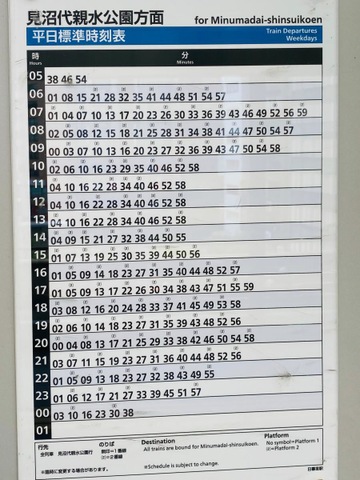 見沼代親水公園方面 for Minumadai-shinsuikoen
平日標準時刻表 Train Departures
Weekdays
時 分
Hours Minutes
05 38 46 54
06 01 08 15 21 28 32 35 41 44 48 51 54 57
07 01 04 07 10 13 17 20 23 26 30 33 36 39 43 46 49 52 56 59
08 02 05 08 12 15 18 21 25 28 31 34 38 41 44 47 50 54 57
09 00 03 07 10 13 16 20 23 27 32 36 39 43 47 50 54 58
10 02 06 10 16 23 29 35 40 46 52 58
11 04 10 16 22 28 34 40 46 52 58
12 04 10 16 22 28 34 40 46 52 58
13 04 10 16 22 28 34 40 46 52 58
14 04 09 15 21 27 32 38 44 50 55
15 01 07 13 19 25 30 35 39 44 50 56
16 01 05 09 14 18 23 27 31 35 40 44 48 52 57
17 01 05 09 13 17 21 26 30 34 38 43 47 51 55 59
18 03 08 12 16 20 24 28 33 37 41 45 49 53 58
19 02 06 10 14 18 23 27 31 35 39 43 48 52 56
20 00 04 08 13 17 21 25 29 33 38 42 46 50 54 58
21 03 07 11 15 19 23 27 31 36 40 44 48 52 56
22 01 05 09 13 18 23 27 32 38 43 49 55
23 01 06 12 17 21 27 33 39 45 51 57
00 03 10 16 23 30 38
01
行先 のりば Destination Platform
全列車 見沼代親水公園行 無印=1番線 All trains are bound for Minumadai-shinsuikoen. No symbol=Platform 1
②=2番線 ②=Platform 2
※臨時に変更する場合があります。 ※Schedule is subject to change. 日暮里駅